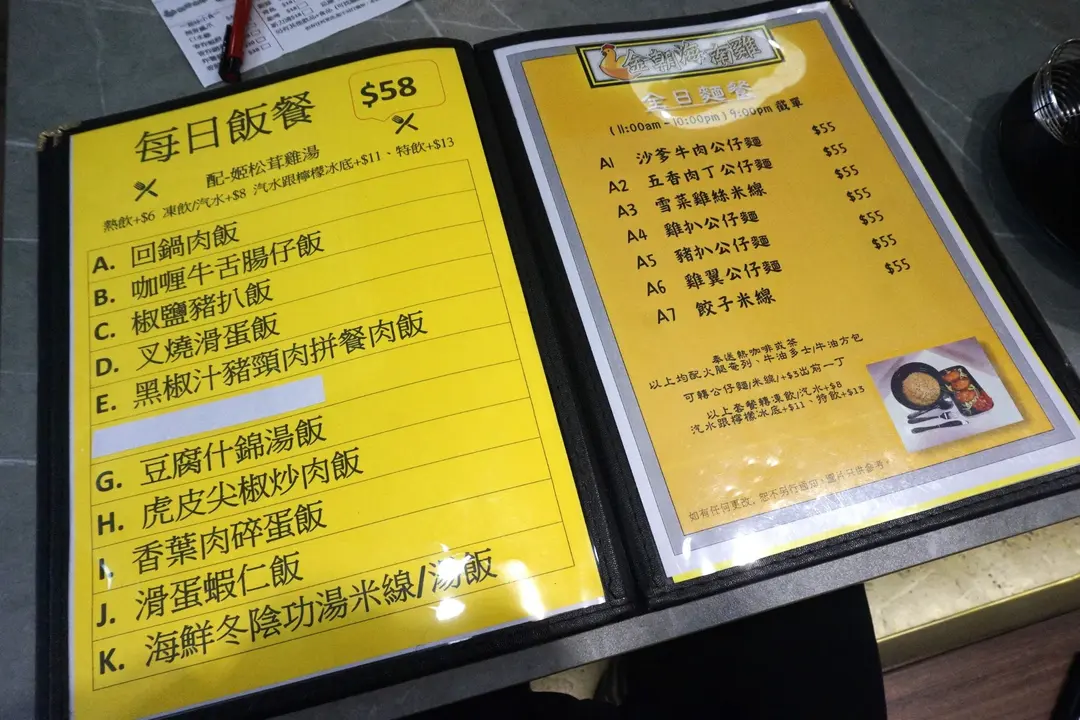 每日飯餐
$58
配-姬松茸雞湯
熱飲+$6 凍飲/汽水+$8 汽水跟檸檬冰底+$11、特飲+$13
A. 回鍋肉飯
B. 咖喱牛舌腸仔飯
C. 椒鹽豬扒飯
D. 叉燒滑蛋飯
E. 黑椒汁豬頸肉拼餐肉飯
G. 豆腐什錦湯飯
H. 虎皮尖椒炒肉飯
I. 香葉肉碎蛋飯
J. 滑蛋蝦仁飯
K. 海鮮冬陰功湯米線/湯飯
金朝海南雞
全日麵餐
(11:00am - 10:00pm) 9:00pm 截單
A1 沙爹牛肉公仔麵 $55
A2 五香肉丁公仔麵 $55
A3 雪菜雞絲米線 $55
A4 雞扒公仔麵 $55
A5 豬扒公仔麵 $55
A6 雞翼公仔麵 $55
A7 餃子米線 $55
奉送熱咖啡或茶
以上均配火腿奄列、牛油多士/牛油方包
可轉公仔麵/米線/+$3出前一丁
以上套餐轉凍飲/汽水+$8
汽水跟檸檬冰底+$11、特飲+$13
如有任何更改，恕不另行通知，圖片只供參考。